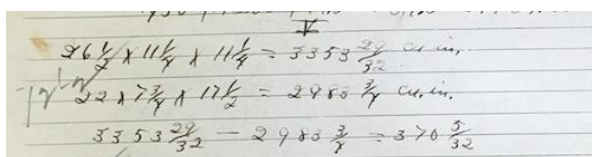 V
26 1/2 x 11 1/4 x 11 1/4 = 3353 29/32 cu in.
22 x 7 3/4 x 17 1/2 = 2983 3/4 cu. in.
3353 29/32 - 2983 3/4 = 370 5/32